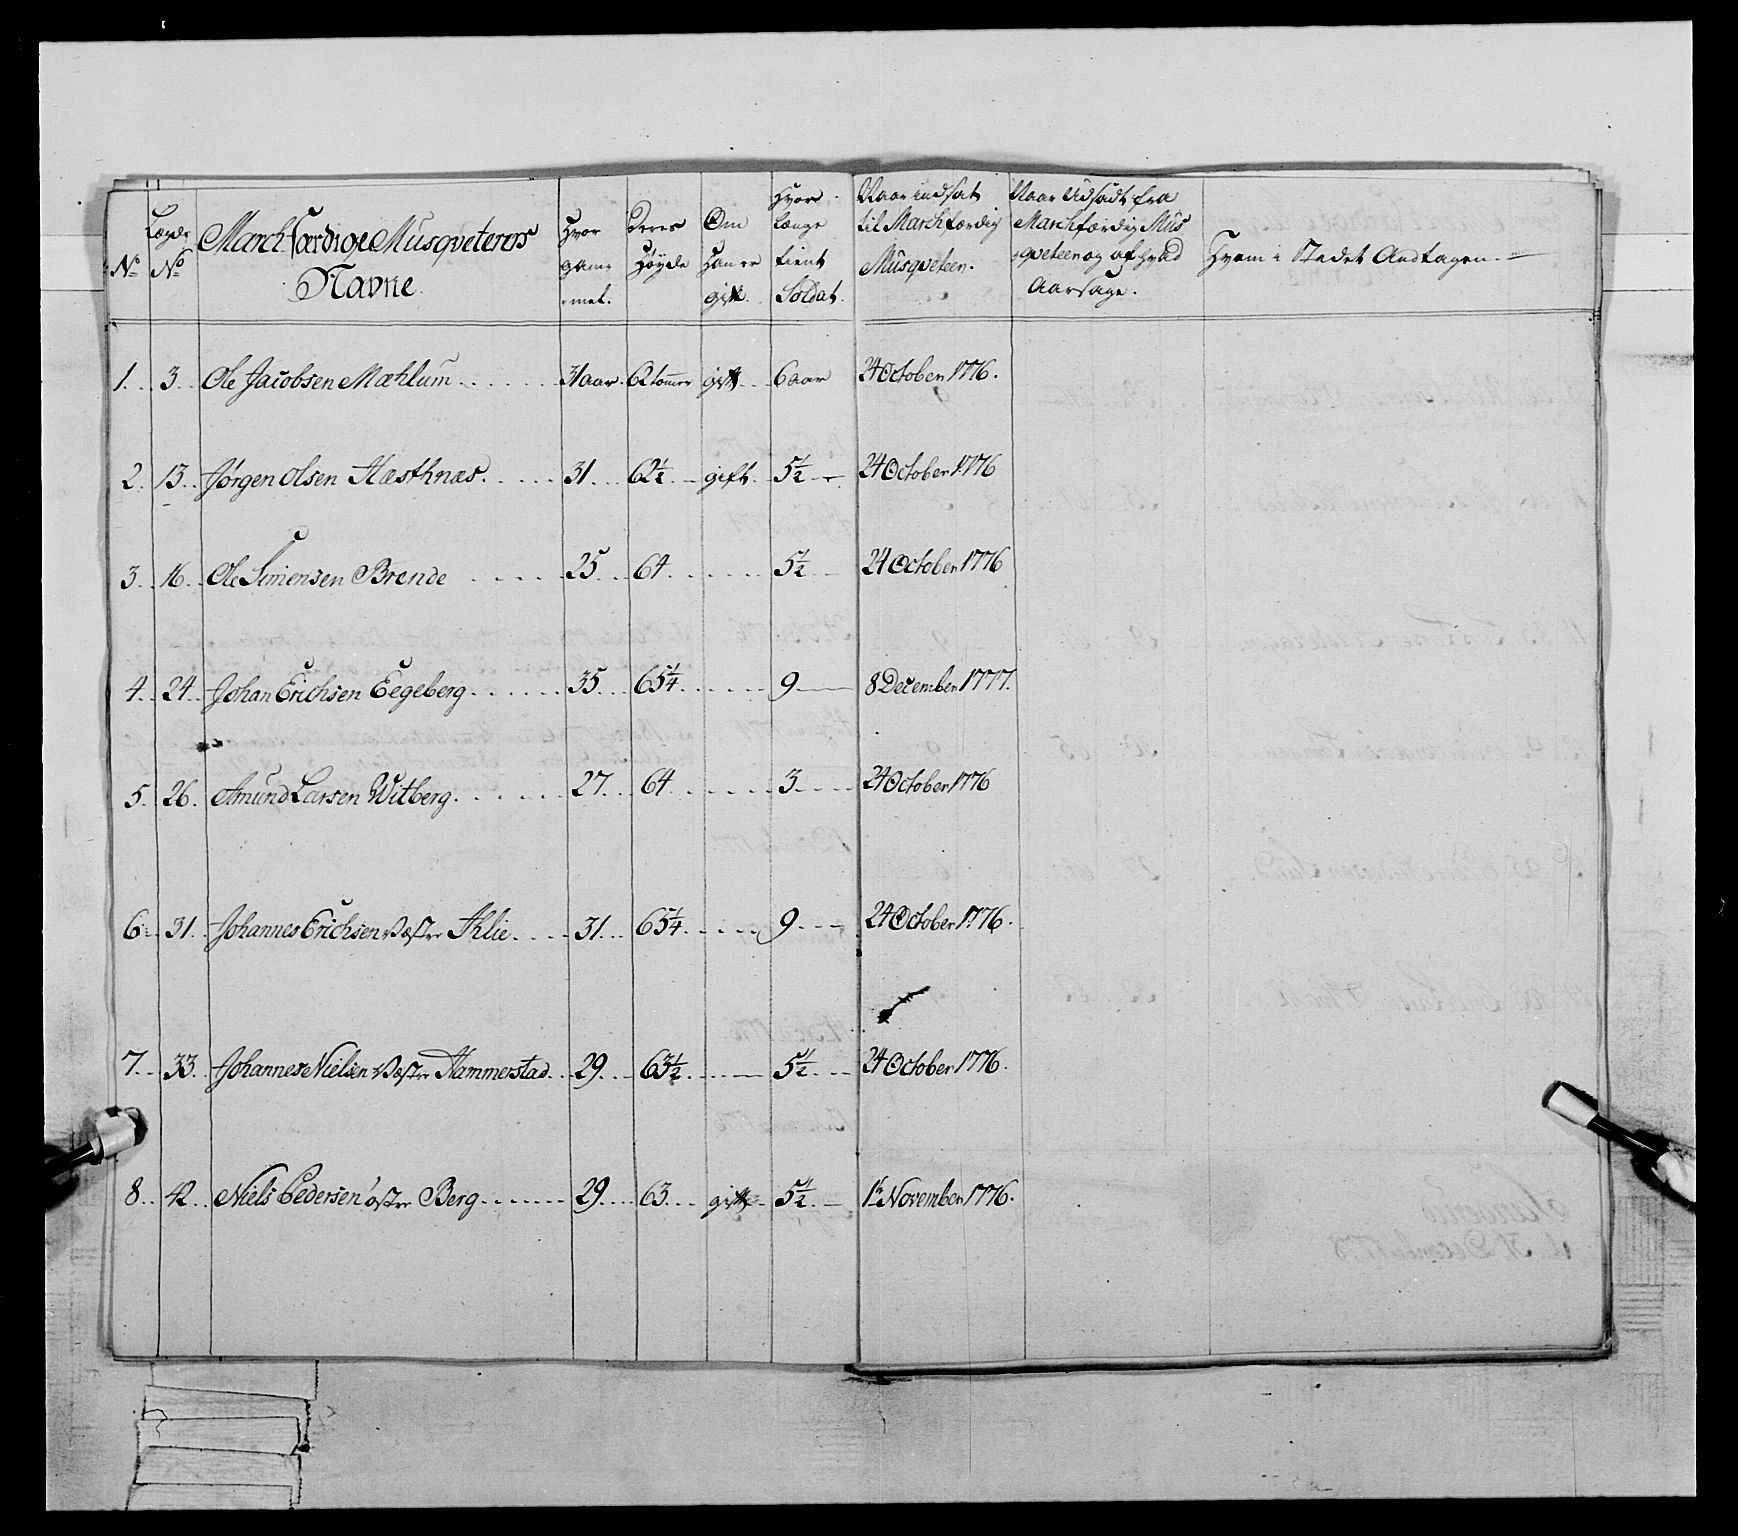 No Lægds No March færdige Musqveterers Navne Hvor gam=met. Deres Høyde Om Han er gift. Hvor længe tient Soldat. Naar indsat til Marchfærdig Musqveteer. Naar Udsadt fra Marchfærdig Mus=qveteer og af hvad Aarsage. Hvem i Stedet Andtagen.
1. 3. Ole Jacobsen Mæhlum 31 aar. 62 tommer gift 6 aar 24 October 1776.
2. 13. Jørgen Olsen Hæsthnæs. 31 62½ gift. 5½ 24 October 1776
3. 16. Ole Simensen Brende 25 64 5½ 24 October 1776
4. 24. Johan Erichsen Eegeberg 35 65¼ 9 8 December 1777.
5. 26. Amund Larsen Witberg 27 64 3 24 October 1776
6. 31. Johannes Erichsen Væstre Ihlie 31 65¼ 9 24 October 1776.
7. 33. Johannes Nielsen Væstre Hammerstad 29 63½ 5½ 24 October 1776.
8. 42. Niels Pedersen østre Berg 29 63 gift 5½ 1te November 1776.